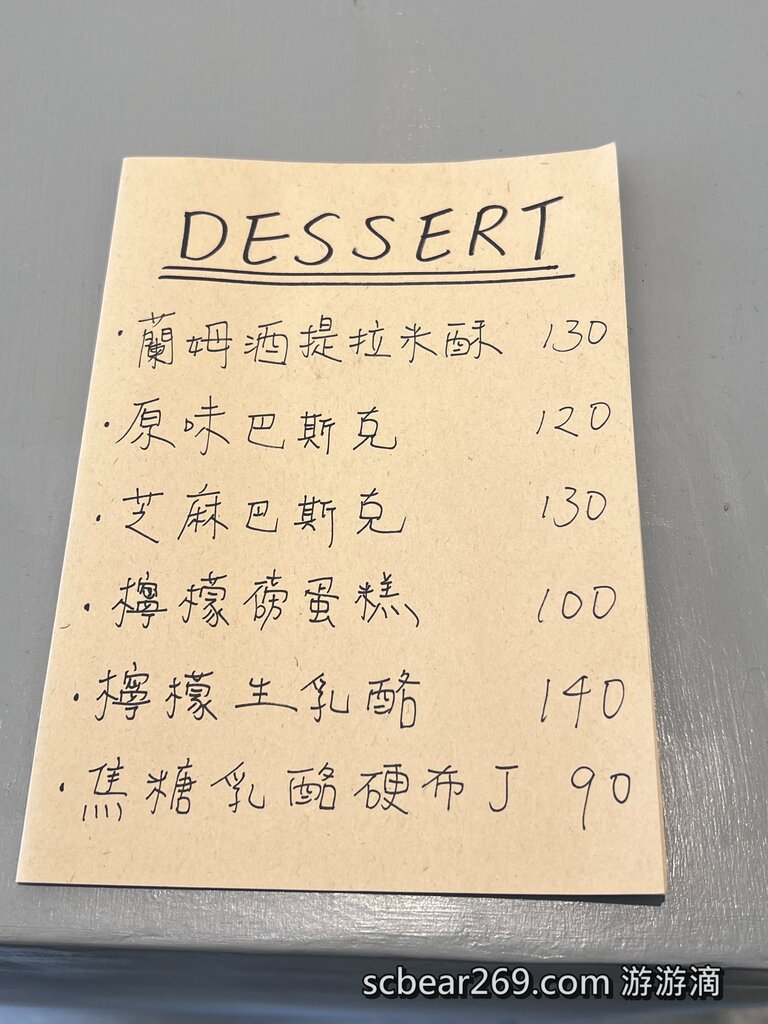 DESSERT
·蘭姆酒提拉米酥 130
·原味巴斯克 120
·芝麻巴斯克 130
·檸檬磅蛋糕 100
·檸檬生乳酪 140
·焦糖乳酪硬布丁 90
scbear269.com 游游滴